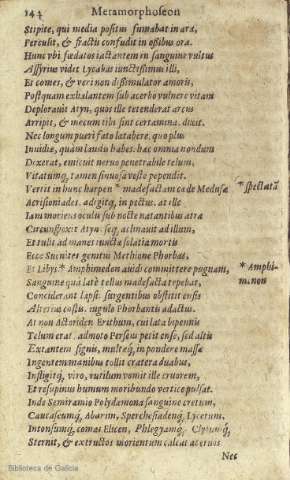 144 Metamorphoseon
Stipite, qui media positus fumabat in ara,
Perculit, & fractis confudit in ossibus ora.
Hunc vbi fœdatos iactantem in sanguine vultus
Assyrius vidit Lycabas iunctissimus illi,
Et comes, & veri non dissimulator amoris,
Postquam exhalantem sub acerbo vulnere vitam
Deplorauit Atyn, quos ille tetenderat arcus
Arripit, & mecum tibi sint certamina, dixit.
Nec longum pueri fato latabere, quo plus
Inuidiæ, quàm laudis habes. hæc omnia nondum
Dixerat, emicuit neruo penetrabile telum,
Vitatumq́, tamen sinuosa veste pependit.
Vertit in hunc harpen * madefactam cæde Medusæ
* spectatã
Acrisioniades. adigitq́, in pectus. at ille
Iam moriens oculis sub nocte natantibus atra
Circunspexit Atyn. seq́, acclinauit ad illum,
Et tulit ad manes iunctæ solatia mortis
Ecce Suenites genitus Methione Phorbas,
Et Libys * Amphimedon auidi committere pugnam,
* Amphi-
menon
Sanguine quo latè tellus madefacta tepebat,
Conciderant lapsi. surgentibus obstitit ensis
Alterius costis. iugulo Phorbantis adactus.
At non Actoriden Erithum, cui lata bipennis
Telum erat. admoto Perseus petit ense, sed altis
Extantem signis, multæq́, in pondere massæ
Ingentem manibus tollit cratera duabus,
Infligitq́, viro, rutilum vomit ille cruorem,
Et resupinus humum moribundo vertice pulsat.
Inde Semiramio Polydæmona sanguine cretum,
Caucaseumq́, Abarim, Sperchesiadenq́, Lycetum,
Intonsumq́, comas Elicen, Phlegyamq́, Clytumq́,
Sternit, & extructos morientum calcat aceruos
Nec
Biblioteca de Galicia